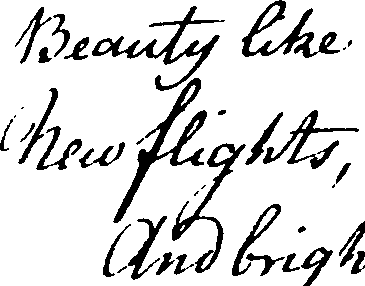 Beauty like
New flights,
And brigh